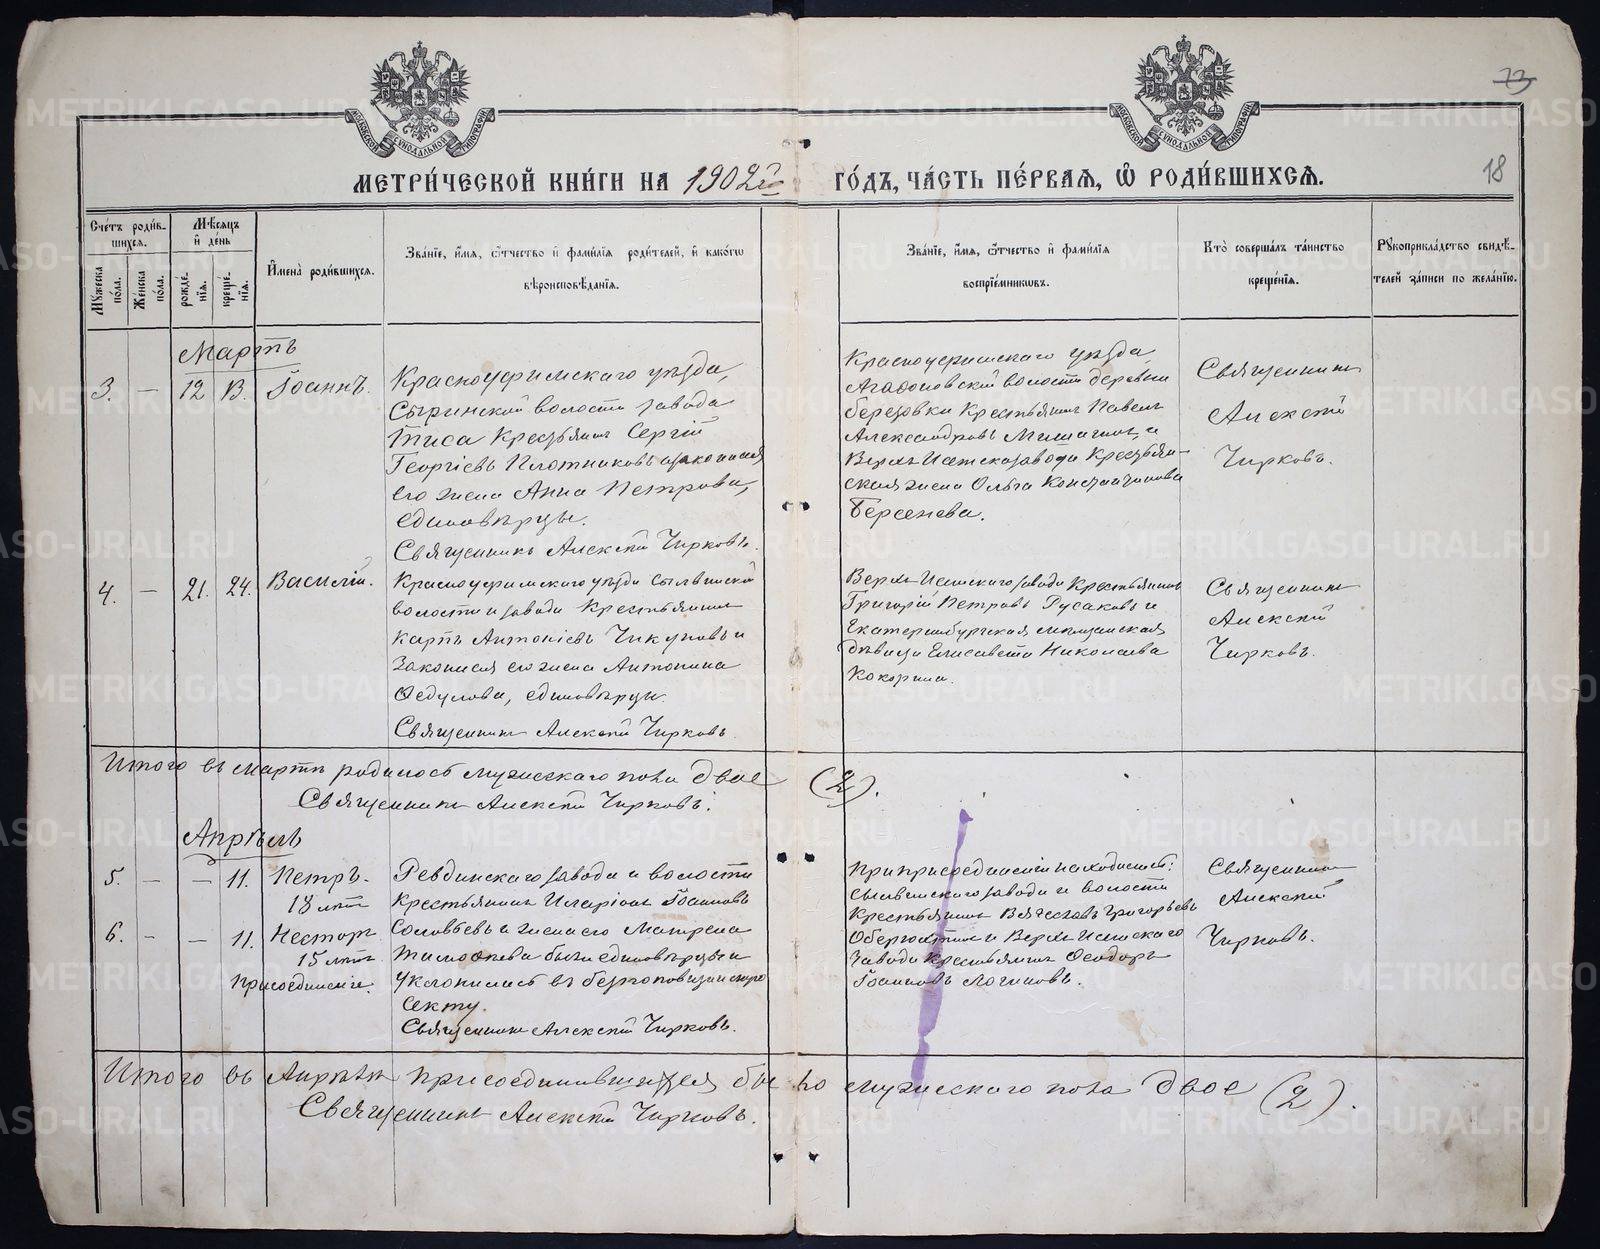 73
18
МОСКОВСКОЙ СѴНОДАЛЬНОЙ ТИПОГРАФІИ
МОСКОВСКОЙ СѴНОДАЛЬНОЙ ТИПОГРАФІИ
МЕТРИ́ЧЕСКОЙ КНИ́ГИ НА 1902й ГО́ДЪ, ЧА́СТЬ ПЕ́РВАЯ, Ѡ РОДИ́ВШИХСЯ.
Сче́тъ роди́в-
шихся.
Мѣ́сяцъ
и де́нь
Му́жеска
по́ла.
Же́нска
по́ла.
рожде́-
нїя.
креще́-
нїя.
Имена̀ роди́вшихся.
Зва́нїе, и́мя, ѻ́тчество и фами́лїя роди́телей, и како́гѡ
вѣроисповѣ́данїя.
Зва́нїе, и́мя, ѻ́тчество и фами́лїя
воспрїе́мниковъ.
Кто̀ соверша́лъ та́инство
креще́нїя.
Рукоприкла́дство свидѣ́-
телей за́писи по жела́нїю.
Мартъ
3. — 12 В. Іоаннъ.
Красноуфимскаго уѣзда,
Сыринской волости завода
Тиса Крестьянинъ Сергій
Георгіевъ Плотниковъ и законная
его жена Анна Петрова,
единовѣрцы.
Священникъ Алексій Чирковъ.
Красноуфимскаго уѣзда
Агафоновской волости деревни
березовки Крестьянинъ Павелъ
Александровъ и
Верхъ Исетскаго завода Крестьян-
ская жена Ольга Константинова
Берсенева.
Священникъ
Алексій
Чирковъ.
4. — 21. 24. Василій.
Красноуфимскаго уѣзда Сылвинской
волости и завода Крестьянинъ
Карпъ Антоніевъ Чикуновъ и
законная его жена Антонина
Федулова, единовѣрцы.
Священникъ Алексій Чирковъ.
Верхъ Исетскаго завода Крестьянинъ
Григорій Петровъ Русаковъ и
Екатеринбургская мѣщанская
дѣвица Елисавета Николаева
Кокорина.
Священникъ
Алексій
Чирковъ.
Итого въ мартѣ родилось мужескаго пола двое (2).
Священникъ Алексій Чирковъ.
Апрѣль
5. — — 11. Петръ.
18 лѣтъ
6. — — 11. Несторъ
15 лѣтъ
присоединеніе.
Ревдинскаго завода и волости
Крестьянинъ Иларіонъ Іоанновъ
Соловьевъ и жена его Матрена
Тимофеева были единовѣрцы и
уклонились въ безпоповщинскую
секту.
Священникъ Алексій Чирковъ.
При присоединеніи находились:
Сылвинскаго завода и волости
Крестьянинъ Вячеславъ Григорьевъ
и Верхъ Исетскаго
завода Крестьянинъ Феодоръ
Іоанновъ Логиновъ.
Священникъ
Алексій
Чирковъ.
Итого въ Апрѣлѣ присоединившихся было мужескаго пола двое (2).
Священникъ Алексій Чирковъ.
METRIKI.GASO-URAL.RU